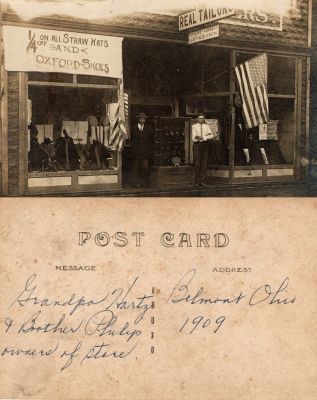 1/4 ON ALL STRAW HATS
OFF AND
OXFORD SHOES
REAL TAILORS
POST CARD
MESSAGE
ADDRESS
Grandpa Hartz
& Brother Philip
owners of store.
Belmont Ohio
1909
AZUXO